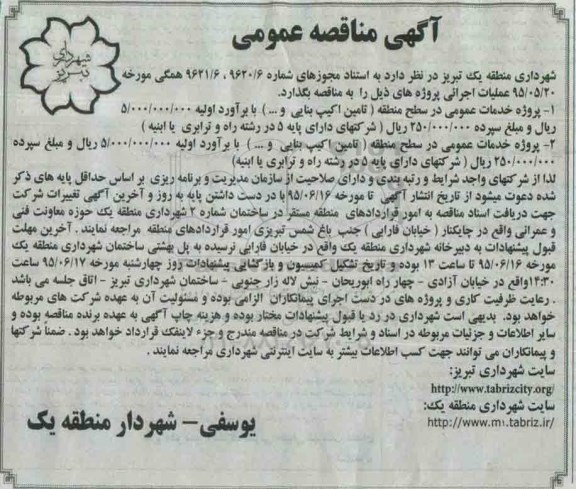 آگهی مناقصه عمومی
شهرداری تبریز
شهرداری منطقه یک تبریز در نظر دارد به استناد مجوزهای شماره ۹۶۲۰/۶ ، ۹۶۲۱/۶ همگی مورخه
۹۵/۰۵/۲۰ عملیات اجرائی پروژه های ذیل را به مناقصه بگذارد.
۱- پروژه خدمات عمومی در سطح منطقه ( تامین اکیپ بنایی و ... ) با برآورد اولیه ۵/۰۰۰/۰۰۰/۰۰۰
ریال و مبلغ سپرده ۲۵۰/۰۰۰/۰۰۰ ریال ( شرکتهای دارای پایه ۵ در رشته راه و ترابری یا ابنیه )
۲- پروژه خدمات عمومی در سطح منطقه ( تامین اکیپ بنایی و ... ) با برآورد اولیه ۵/۰۰۰/۰۰۰/۰۰۰ ریال و مبلغ سپرده
۲۵۰/۰۰۰/۰۰۰ ریال ( شرکتهای دارای پایه ۵ در رشته راه و ترابری یا ابنیه)
لذا از شرکتهای واجد شرایط و رتبه بندی و دارای صلاحیت از سازمان مدیریت و برنامه ریزی بر اساس حداقل پایه های ذکر
شده دعوت میشود از تاریخ انتشار آگهی تا مورخه ۹۵/۰۶/۱۶ با در دست داشتن پایه به روز و آخرین آگهی تغییرات شرکت
جهت دریافت اسناد مناقصه به امور قراردادهای منطقه مستقر در ساختمان شماره ۲ شهرداری منطقه یک حوزه معاونت فنی
و عمرانی واقع در چایکنار ( خیابان فارابی ) جنب باغ شمس تبریزی امور قراردادهای منطقه مراجعه نمایند . آخرین مهلت
قبول پیشنهادات به دبیرخانه شهرداری منطقه یک واقع در خیابان فارابی نرسیده به پل بهشتی ساختمان شهرداری منطقه یک
مورخه ۹۵/۰۶/۱۶ تا ساعت ۱۳ بوده و تاریخ تشکیل کمیسیون و بازگشایی پیشنهادات روز چهارشنبه مورخه ۹۵/۰۶/۱۷ ساعت
۱۴:۳۰ واقع در خیابان آزادی - چهار راه ابوریحان - نبش لاله زار جنوبی - ساختمان شهرداری تبریز - اتاق جلسه می باشد
. رعایت ظرفیت کاری و پروژه های در دست اجرای پیمانکاران الزامی بوده و مسئولیت آن به عهده شرکت های مربوطه
خواهد بود. بدیهی است شهرداری در رد یا قبول پیشنهادات مختار بوده و هزینه چاپ آگهی به عهده برنده مناقصه بوده و
سایر اطلاعات و جزئیات مربوطه در اسناد و شرایط شرکت در مناقصه مندرج و جزء لاینفک قرارداد خواهد بود . ضمنا شرکتها
و پیمانکاران می توانند جهت کسب اطلاعات بیشتر به سایت اینترنتی شهرداری مراجعه نمایند .
سایت شهرداری تبریز:
http://www.tabrizcity.org/
سایت شهرداری منطقه یک:
http://www.m1.tabriz.ir/
یوسفی - شهردار منطقه یک